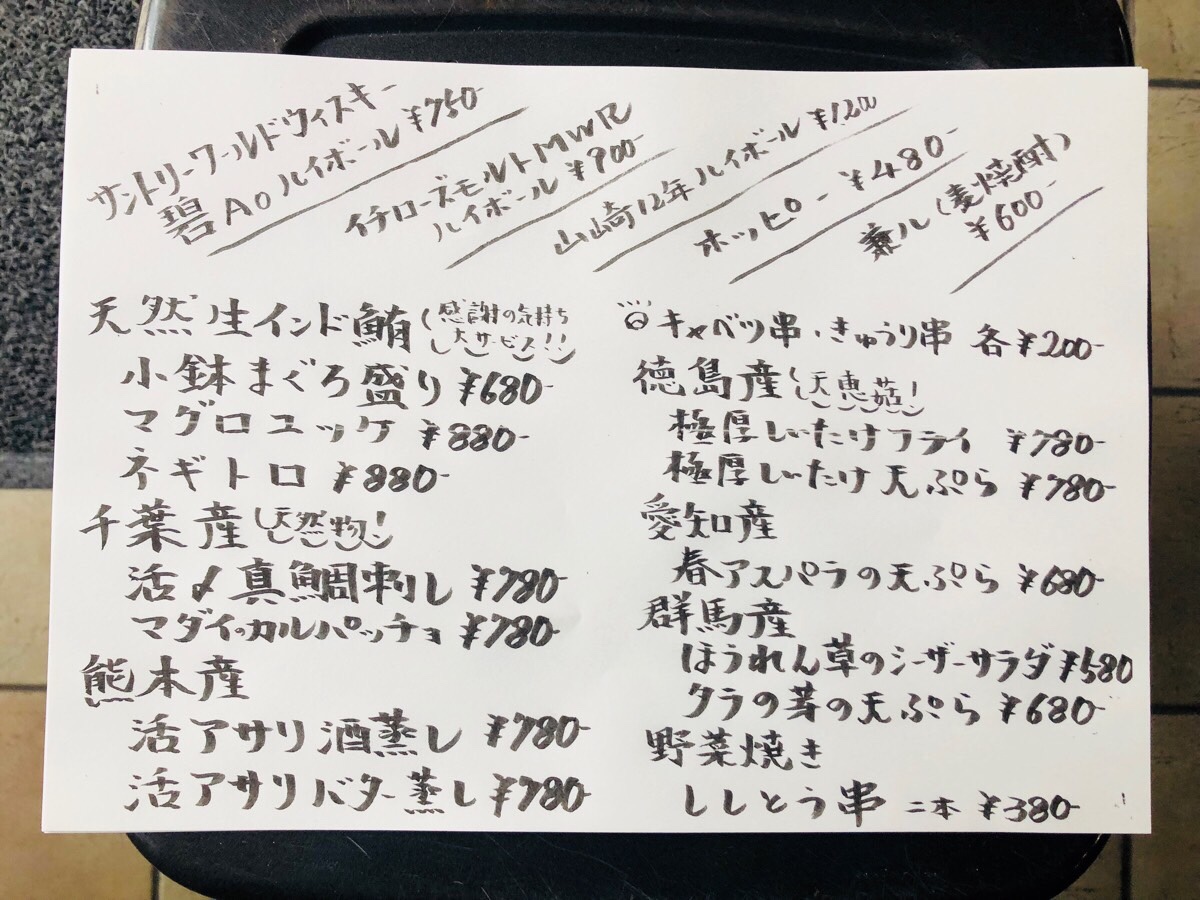 サントリーワールドウィスキー
碧Aoハイボール ¥750-
イチローズモルトMWR
ハイボール ¥900-
山崎12年ハイボール ¥1,200
ホッピー ¥480-
兼八(麦焼酎)
¥600-
天然生インド鮪(感謝の気持ち
大サービス!!
小鉢まぐろ盛り ¥680-
マグロユッケ ¥880-
ネギトロ ¥880-
千葉産 天然物!
活〆真鯛刺し ¥780-
マダイのカルパッチョ ¥780-
熊本産
活アサリ酒蒸し ¥780-
活アサリバター蒸し ¥780-
キャベツ串・きゅうり串 各¥200-
徳島産 天恵菇!
極厚しいたけフライ ¥780-
極厚しいたけ天ぷら ¥780-
愛知産
春アスパラの天ぷら ¥680-
群馬産
ほうれん草のシーザーサラダ ¥580
タラの芽の天ぷら ¥680-
野菜焼き
ししとう串 二本 ¥380-